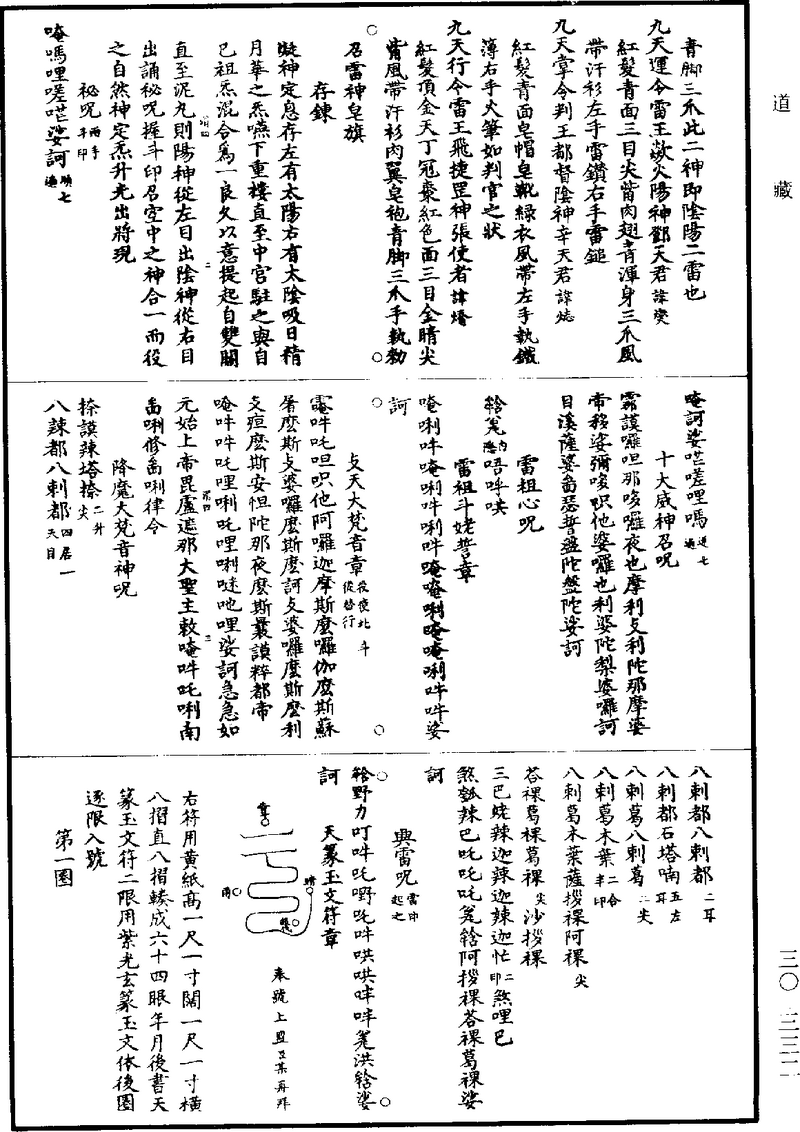 道藏
青脚三爪此二神即陰陽二雷也
九天運令雷王歘火陽神鄧天君諱燮
紅髮青面三目尖觜肉翅青渾身三爪風
帶汗衫左手雷鑽右手雷鎚
九天掌令判王都督陰神辛天君諱
紅髮青面皂帽皂靴綠衣風帶左手執鐵
簿右手火筆如判官之狀
九天行令雷王飛捷罡神張使者諱
紅髮頂金天丁冠棗紅色面三目金睛尖
觜風帶汗衫肉翼皂袍青脚三爪手執勑
召雷神皂旗
存鍊
凝神定息存左有太陽右有太陰吸日精
月華之炁嚥下重樓直至中宮駐之與自
己祖炁混合爲一良久以意提起自雙關
直至泥丸則陽神從左目出陰神從右目
出誦秘呪握斗印召空中之神合一而役
之自然神定炁升光出將現
秘呪兩手斗印
唵嗎哩嗟茫娑訶順七遍
唵訶娑茫嗟哩嗎逆七遍
十大威神召呪
霧謨囉呾那哆囉夜也摩利攴利陀那摩婆
帝移娑彌哆呮他婆囉也利婆陀梨婆囉訶
目溪薩婆畨瑟普盤陀盤陀娑訶
雷祖心呪
唅䇔內隱唔呼哄
雷祖斗姥誓章
唵唎吽唵唎吽唎吽唵唵唎唵唵唎吽吽娑
訶
攴天大梵音章
唵吽吒呾呮他阿囉迦摩斯麼囉伽麼斯蘇
屠麼斯攴婆囉麼斯麼訶攴婆囉麼斯麼利
攴疸麼斯安怛陀那夜麼斯曩謨粹都帝
唵吽吽吒哩唎吒哩唎噠吔哩娑訶急急如
元始上帝毘盧遮那大聖主敕唵吽吒唎南
無唎修無唎律令
降魔大梵音神呪
㮈謨辣塔㮈尖二升
八諫都八剌都四居一天目
八剌都八剌都二耳
八剌都石塔喃五左耳
八剌葛八剌葛二尖
八剌葛木葉二合斗印
八剌葛木葉薩拶裸阿裸尖
荅裸葛裸葛裸尖沙拶裸
三巴姥辣迦辣迦辣迦忙二印煞哩巴
煞瓠辣巴吒吒吒䇔唅阿拶裸荅裸葛裸娑
訶
興雷呪雷印起之
唅野力叮吽吒嘢吒吽哄哄吽吽䇔洪唅娑
訶
天篆玉文符章
奉號上盟臣某再拜
右符用黄紙高一尺一寸闊一尺一寸橫
八摺直八摺輳成六十四眼年月後書天
篆玉文符二限用紫光玄篆玉文依後圖
逐限入號
第一圖
三〇—三三二